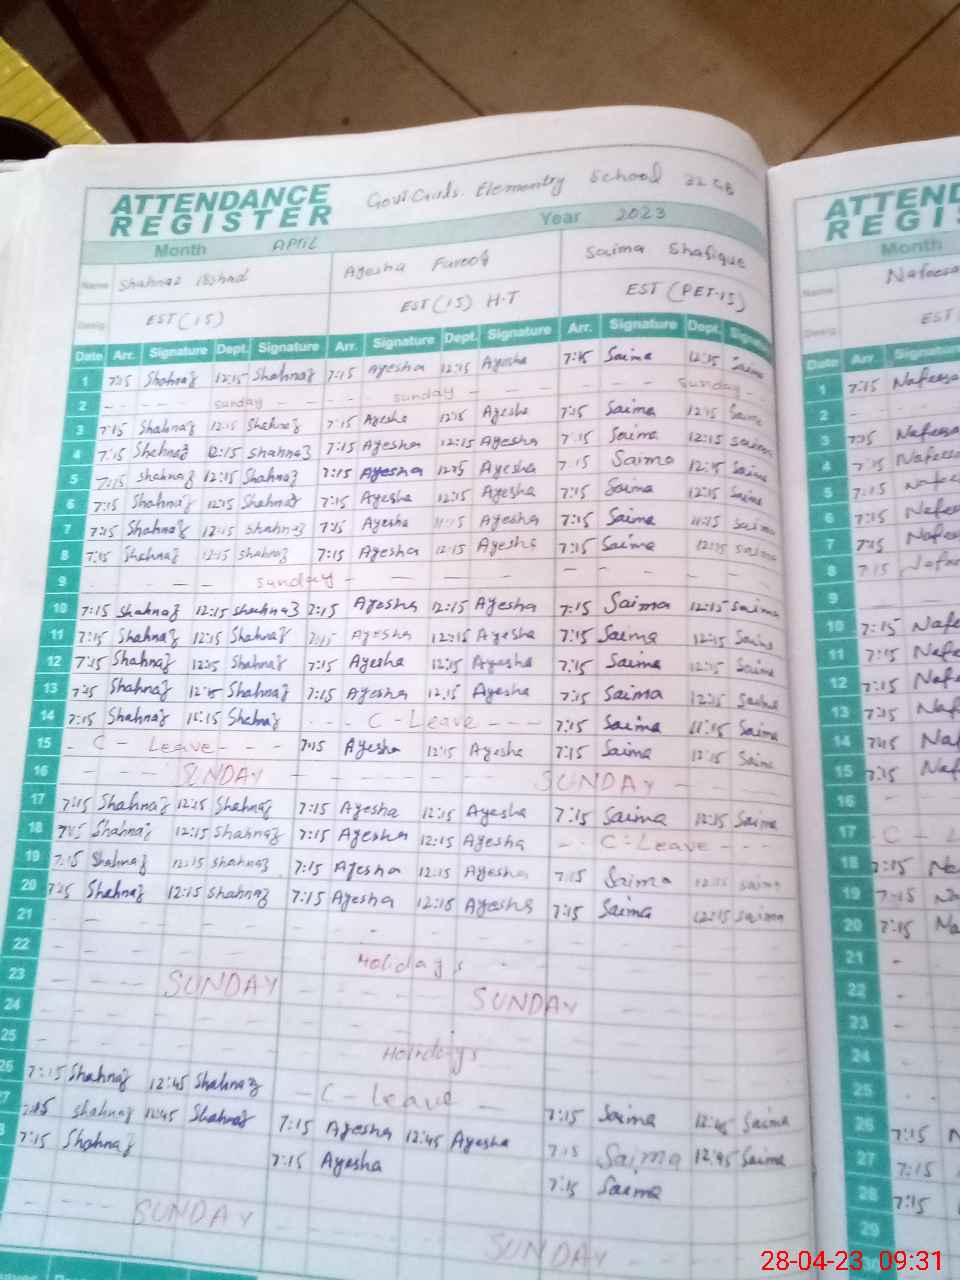 ATTENDANCE
REGISTER
Govt. Girls. Elementry School 22 GB
Month April Year 2023
Name Shahnaz Ayesha Farooq Saima Shafique
Desig. EST (15) EST (15) H.T EST (PET-15)
Date Arr. Signature Dept. Signature Arr. Signature Dept. Signature Arr. Signature Dept. Signature
1 7:15 Shahnaz 12:15 Shahnaz 7:15 Ayesha 12:15 Ayesha 7:15 Saima 12:15 Saima
2 sunday sunday sunday
3 7:15 Shahnaz 12:15 Shahnaz 7:15 Ayesha 12:15 Ayesha 7:15 Saima 12:15 Saima
4 7:15 Shahnaz 12:15 Shahnaz 7:15 Ayesha 12:15 Ayesha 7:15 Saima 12:15 Saima
5 7:15 Shahnaz 12:15 Shahnaz 7:15 Ayesha 12:15 Ayesha 7:15 Saima 12:15 Saima
6 7:15 Shahnaz 12:15 Shahnaz 7:15 Ayesha 12:15 Ayesha 7:15 Saima 12:15 Saima
7 7:15 Shahnaz Shahnaz 7:15 Ayesha 11:15 Ayesha 7:15 Saima 11:15 Saima
8 7:15 Shahnaz 12:15 Shahnaz 7:15 Ayesha 12:15 Ayesha 7:15 Saima 12:15 Saima
9 sunday
10 7:15 Shahnaz 12:15 Shahnaz 7:15 Ayesha 12:15 Ayesha 7:15 Saima 12:15 Saima
11 7:15 Shahnaz 12:15 Shahnaz 7:15 Ayesha 12:15 Ayesha 7:15 Saima 12:15 Saima
12 7:15 Shahnaz 12:15 Shahnaz 7:15 Ayesha 12:15 Ayesha 7:15 Saima 12:15 Saima
13 7:15 Shahnaz 12:15 Shahnaz 7:15 Ayesha 12:15 Ayesha 7:15 Saima 12:15 Saima
14 7:15 Shahnaz Shahnaz C-Leave 7:15 Saima 11:15 Saima
15 C-Leave 7:15 Ayesha 12:15 Ayesha 7:15 Saima 12:15 Saima
16 SUNDAY SUNDAY
17 7:15 Shahnaz 12:15 Shahnaz 7:15 Ayesha 12:15 Ayesha 7:15 Saima 12:15 Saima
18 7:15 Shahnaz 12:15 Shahnaz 7:15 Ayesha 12:15 Ayesha C-Leave
19 7:15 Shahnaz 12:15 Shahnaz 7:15 Ayesha 12:15 Ayesha 7:15 Saima 12:15 Saima
20 7:15 Shahnaz 12:15 Shahnaz 7:15 Ayesha 12:15 Ayesha 7:15 Saima 12:15 Saima
21
22 Holidays
23 SUNDAY SUNDAY
24
25 Holidays
26 7:15 Shahnaz 12:45 Shahnaz C-Leave 7:15 Saima 12:45 Saima
7:15 Shahnaz 12:45 Shahnaz 7:15 Ayesha 12:45 Ayesha 7:15 Saima 12:45 Saima
7:15 Shahnaz 7:15 Ayesha 7:15 Saima
SUNDAY SUNDAY
Month
Name
Desig. EST
Date Arr
1 7:15 Nafeesa
2
3 7:15
4 7:15
5 7:15
6 7:15
7 7:15
8 7:15
9
10 7:15
11 7:15
12 7:15
13 7:15
14 7:15
15 7:15
16
17
18 7:15
19 7:15
20 7:15
21
22
23
24
25
26 7:15
27 7:15
28 7:15
29
28-04-23 09:31